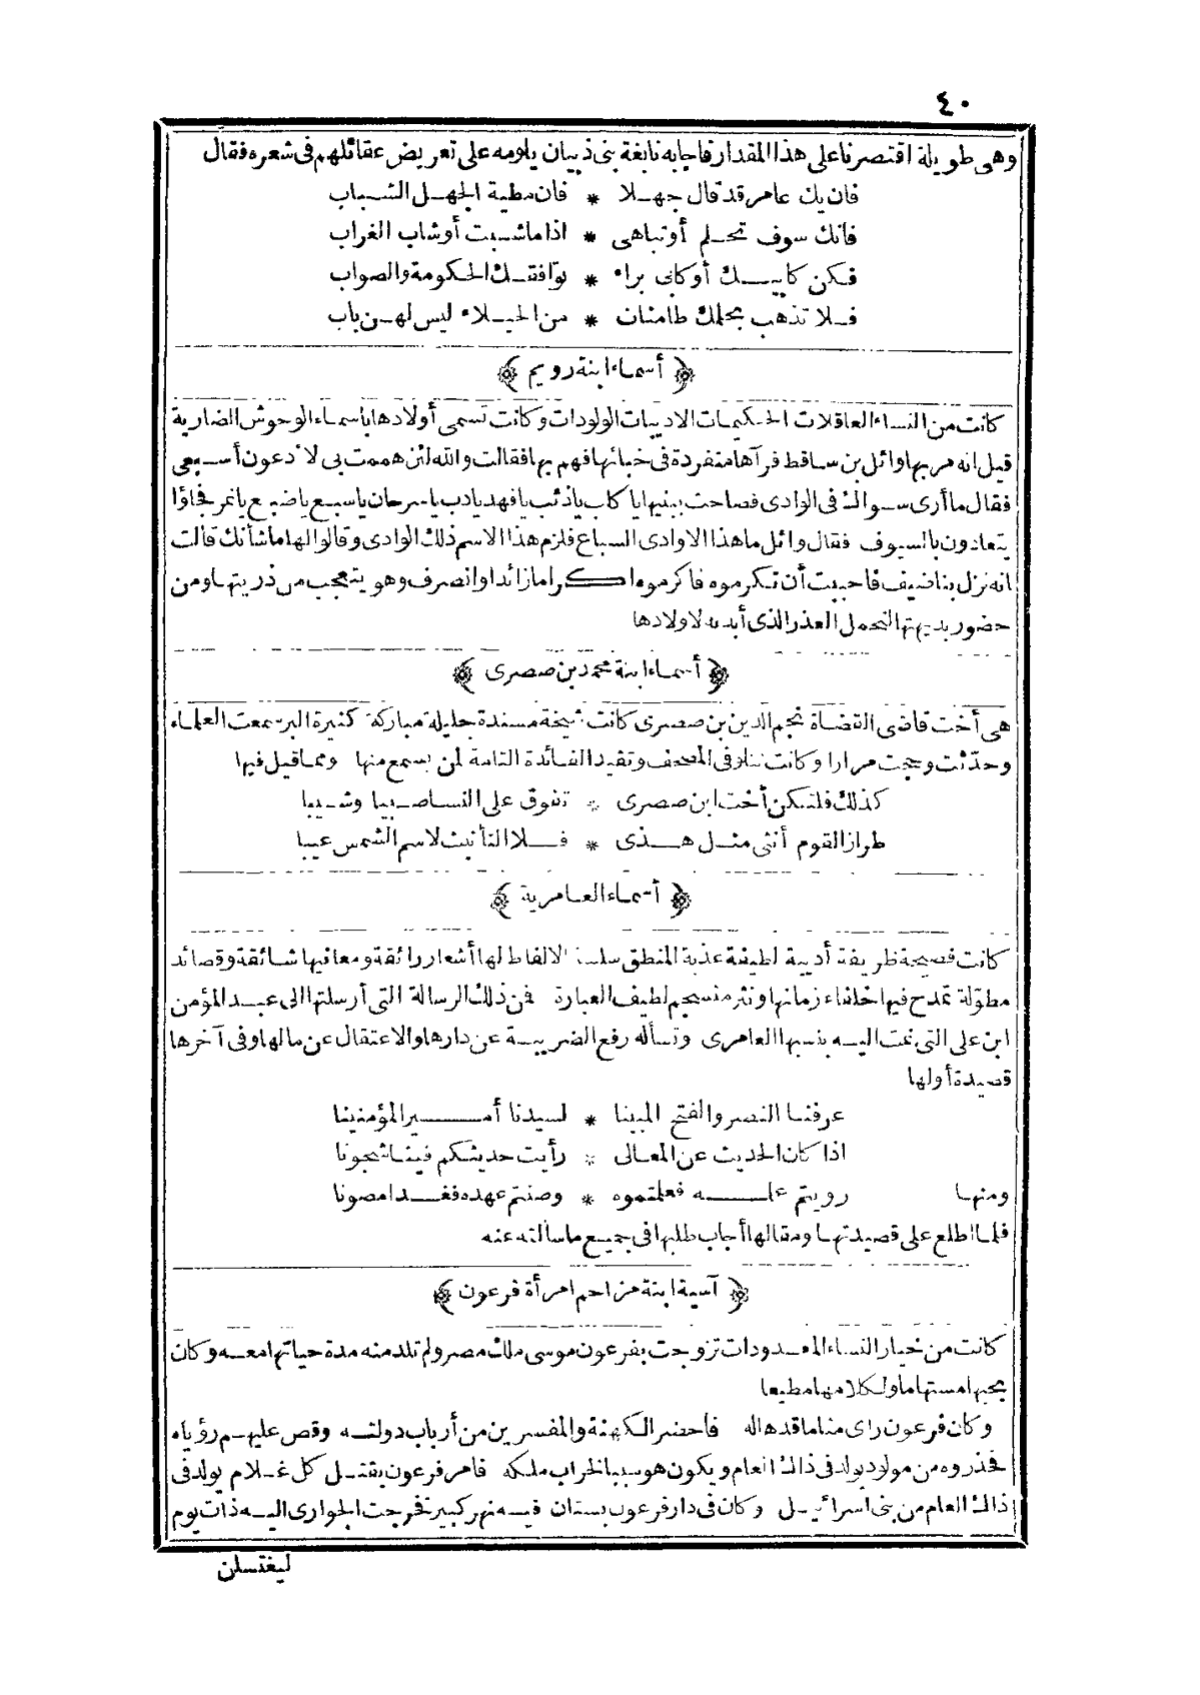 ٤٠
وهى طويلة اقتصرنا على هذا المقدار فاجابه نابغة بنى ذبيان يلومه على تعريض عقائلهم فى شعره فقال
فان يك عامر قد قال جهلا * فان مطية الجهل الشباب
فانك سوف تحلم أوتباهى * اذا ماشبت أوشاب الغراب
فكن كابيك أوكابى براء * توافقك الحكومة والصواب
فلا تذهب بحلمك طامنات * من الخيلاء ليس لهن باب
﴿ أسماء ابنة رويم ﴾
كانت من النساء العاقلات الحكيمات الاديبات الولودات وكانت تسمى أولادها باسماء الوحوش الضارية
قيل انه مر بها وائل بن ساقط فرآها منفردة فى خبائها فهم بها فقالت والله لئن هممت بى لأدعون أسبعى
فقال ماأرى سواك فى الوادى فصاحت ببنيها يا كلب ياذئب يافهد يادب ياسرحان ياسبع ياضبع يانمر فجاؤا
يتعادون بالسيوف فقال وائل ماهذا الاوادى السباع فلزم هذا الاسم ذلك الوادى وقالوا لها ماشأنك قالت
انه نزل بنا ضيف فاحببت أن تكرموه فاكرموه اكراما زائدا وانصرف وهو يتعجب من ذريتها ومن
حضور بديهتها لتحمل العذر الذى أبدته لاولادها
﴿ أسماء ابنة محمد بن صصرى ﴾
هى أخت قاضى القضاة نجم الدين بن صصرى كانت شيخة مسندة جليلة مباركة كثيرة البر سمعت العلماء
وحدّثت وحجت مرارا وكانت تتلو فى المصحف وتفيد الفائدة التامة لمن يسمع منها ومما قيل فيها
كذلك فلتكن أخت ابن صصرى * تفوق على النسا صبيا وشيبا
طراز القوم أنثى مثل هذى * فلا التأنيث لاسم الشمس عيبا
﴿ أسماء العامرية ﴾
كانت فصيحة ظريفة أديبة لطيفة عذبة المنطق سلسة الالفاظ لها أشعار رائقة ومعانيها شائقة وقصائد
مطوّلة تمدح فيها خلفاء زمانها ونثر منسجم لطيف العبارة فمن ذلك الرسالة التى أرسلتها الى عبد المؤمن
ابن على التى نمت اليه بنسبها العامرى وتسأله رفع الضريبة عن دارها والاعتقال عن مالها وفى آخرها
قصيدة أولها
عرفنا النصر والفتح المبينا * لسيدنا أمير المؤمنينا
اذا كان الحديث عن المعالى * رأيت حديثكم فينا شجونا
ومنها رويتم علمه فعلمتموه * وصنتم عهده فغدا مصونا
فلما اطلع على قصيدتها ومقالها أجاب طلبها فى جميع ما سألته عنه
﴿ آسية ابنة مزاحم امرأة فرعون ﴾
كانت من خيار النساء المعدودات تزوجت بفرعون موسى ملك مصر ولم تلد منه مدة حياتها معه وكان
بحبها مستهاما ولكلامها مطيعا
وكان فرعون راى مناما قد هاله فاحضر الكهنة والمفسرين من أرباب دولته وقص عليهم رؤياه
فحذروه من مولود يولد فى ذاك العام ويكون هو سببا لخراب ملكه فامر فرعون بقتل كل غلام يولد فى
ذاك العام من بنى اسرائيل وكان فى دار فرعون بستان فيه نهر كبير فخرجت الجوارى اليه ذات يوم
ليغتسلن